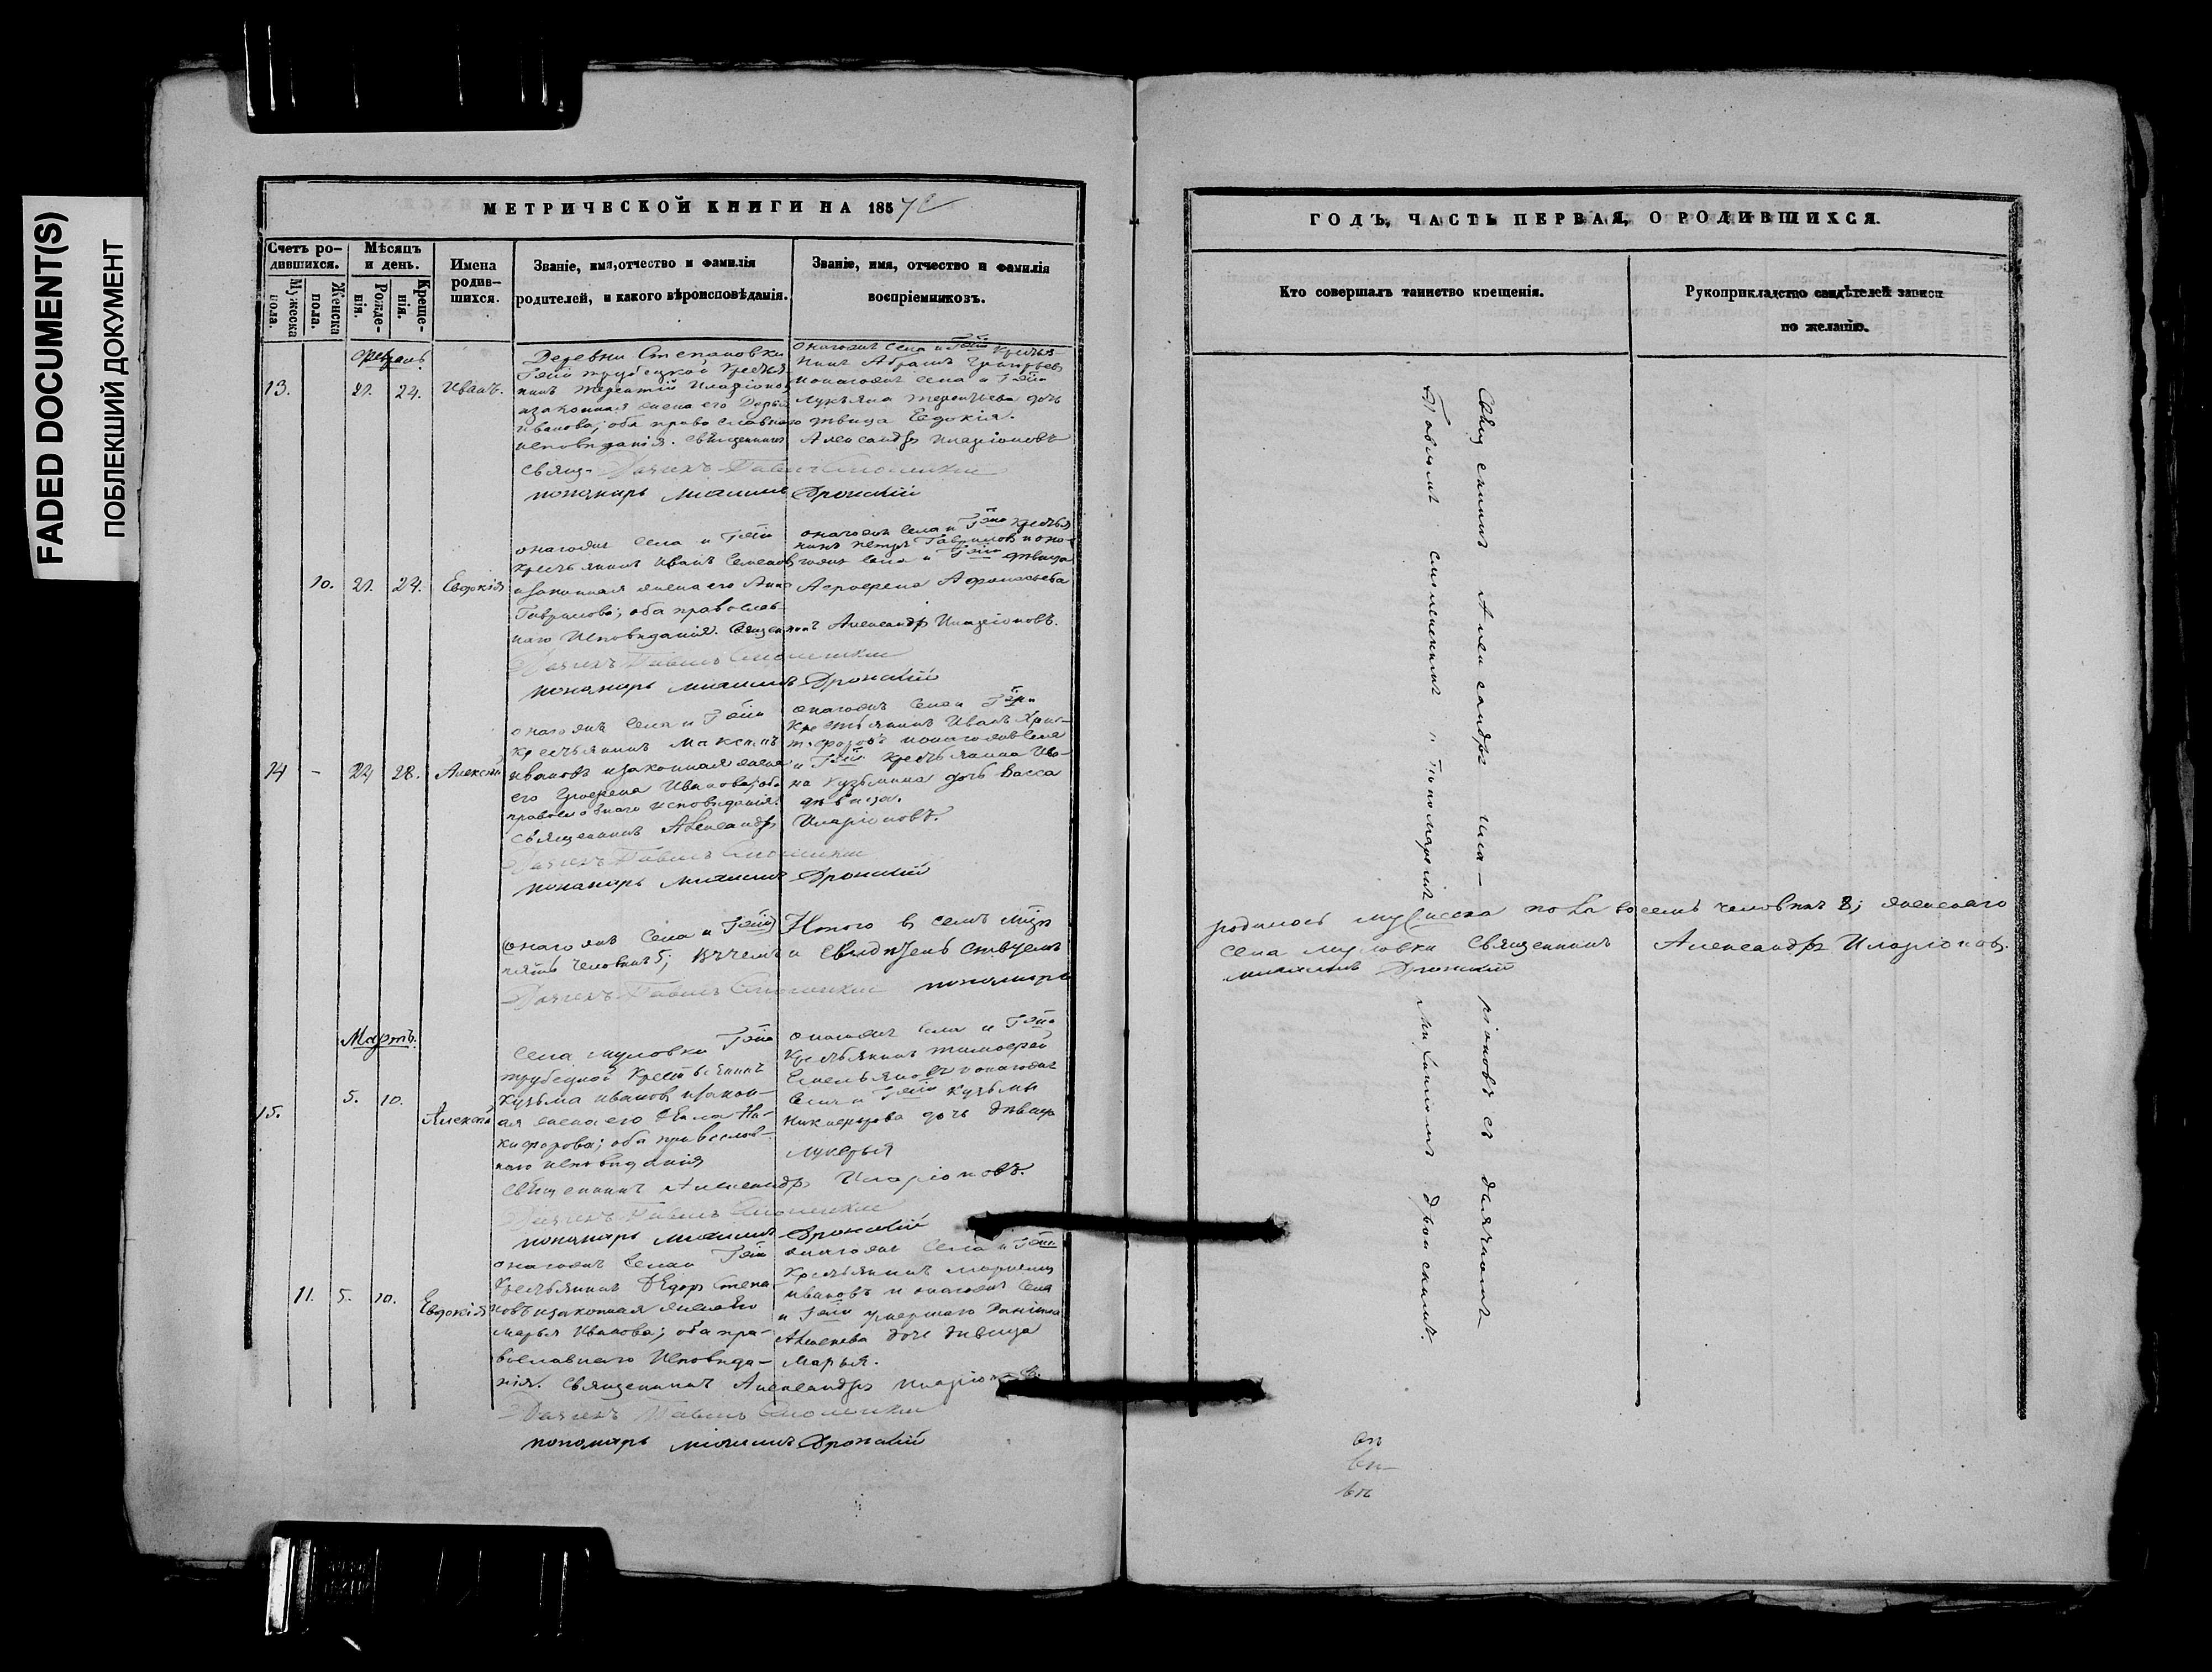 FADED DOCUMENT(S)
ПОБЛЕКШИЙ ДОКУМЕНТ
МЕТРИЧЕСКОЙ КНИГИ НА 185
Счетъ ро-
дившихся.
Мужеска
пола.
Женска
пола.
Мѣсяцъ
и день.
Рожде-
нія.
Креще-
нія.
Имена
родив-
шихся.
Званіе, имя, отчество и фамилія
родителей, и какого вѣроисповѣданія.
Званіе, имя, отчество и фамилія
воспріемниковъ.
Февраль.
13.
21.
24.
Иванъ.
Деревни Степановки
Г-жи Трубецкой крестья-
нинъ Терентій Иларіоно
изаконная жена его Дарья
Иванова; оба православнаго
исповѣданія. Священникъ Александръ Иларіоновъ
онагожъ села и Г-жи крестья
нинъ Абрамъ Григорьев
и онагожъ села и Г-жи
Лукъяна Терентьева дочь
дѣвица Евдокія.
Свящ-
Дьячекъ Павелъ Смоленскій
пономарь Михаилъ Дронскій
10.
21.
24.
Евдокія
онагожъ села и Г-жи
крестьянинъ Иванъ Семенов
изаконная жена его Анна
Гаврилова; оба православ-
наго исповѣданія. Священникъ Александръ Иларіоновъ.
онагожъ села и Г-жи крестья
нинъ Петръ Гаврилов и она-
гожъ села и Г-жи дѣвица
Агрофена Афонасьева
Дьячекъ Павелъ Смоленскій
пономарь Михаилъ Дронскій
14
-
24
28.
Алексѣй
онагожъ села и Г-жи
крестьянинъ Максимъ
Ивановъ изаконная жена
его Иванова; оба
православнаго исповѣданія.
Священникъ Александръ Иларіоновъ.
онагожъ села и Г-жи
крестьянинъ Иванъ Хрис-
тофоровъ и онагожъ села
и Г-жи крестьянина Ива-
на Кузьмина дочь Васса
дѣвица.
Дьячекъ Павелъ Смоленскій
пономарь Михаилъ Дронскій
онагожъ села и Г-жи Итого в семъ м-цѣ
пять человѣкъ 5; въ чемъ и свидѣтельствуемъ
Дьячекъ Павелъ Смоленскій пономарь
Мартъ.
15.
5.
10.
Алексѣй
Села Муловки Г-жи
Трубецкой крестьянинъ
Кузьма Иванов изакон-
ая жена его Ни-
кифорова; оба православ-
наго исповѣданія
Священникъ Александръ Иларіоновъ.
онагожъ села и Г-жи
крестьянинъ Тимофей
Емельяновъ и онагожъ
села и Г-жи Кузьмы
Никифорова дочь дѣвица
Лукерья
Дьячекъ Павелъ Смоленскій
пономарь Михаилъ Дронскій
11.
5.
10.
Евдокія
онагожъ села и Г-жи
крестьянинъ Ѳедоръ Степа-
новъ изаконная жена его
Марья Иванова; оба пра-
вославнаго исповѣда-
нія. Священникъ Александръ Иларіоновъ.
онагожъ села и Г-жи
крестьянинъ
Ивановъ и онагожъ села
и Г-жи умершаго Даніила
Алексѣева дочь дѣвица
Марья.
Дьячекъ Павелъ Смоленскій
пономарь Михаилъ Дронскій
ГОДЪ, ЧАСТЬ ПЕРВАЯ, О РОДИВШИХСЯ.
Кто совершалъ таинство крещенія.
Рукоприкладство свидѣтелей записи
по желанію.
Священникъ Александръ Ила-ріоновъ съ дьячкомъ
Павломъ Смоленскимъ и Пономаремъ Михаиломъ Дронскимъ.
родилось мужеска пола восемь человѣкъ 8; женскаго
Села Муловки Священникъ Александръ Иларіонов.
Михаилъ Дронскій